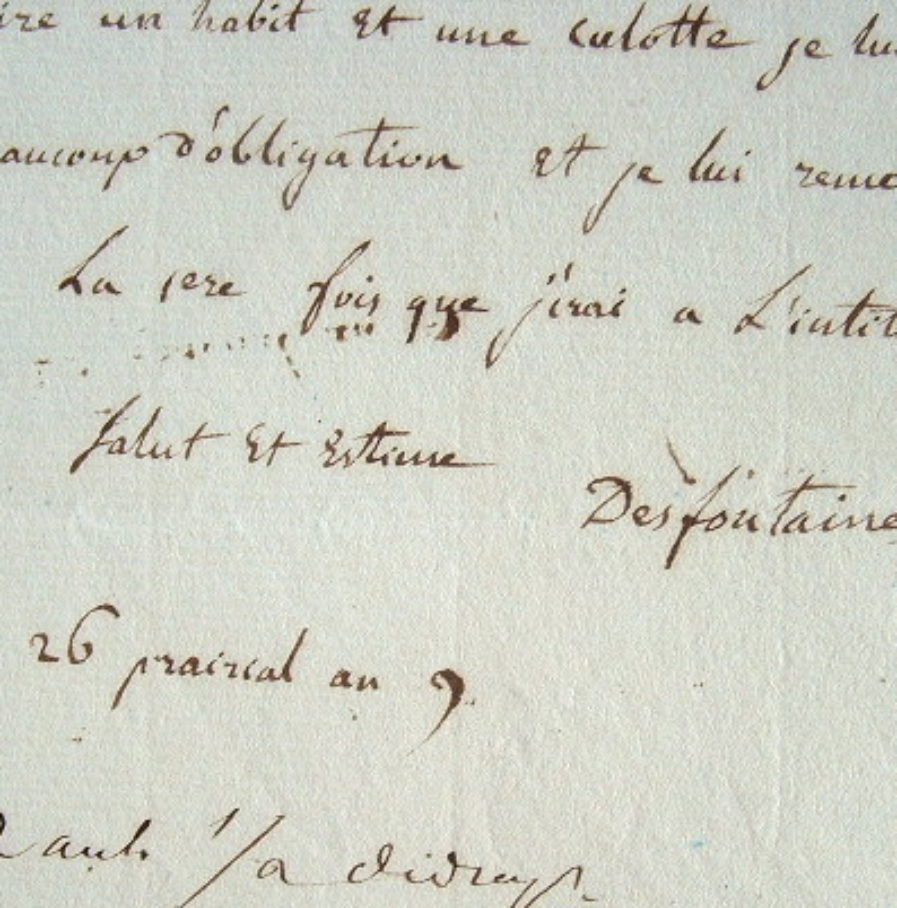 ire un habit et une culotte je lui
aucoup d'obligation et je lui reme
La 1ere fois que j'irai a L'intit
Salut et Estime
Desfontaine
26 prairial an 9.